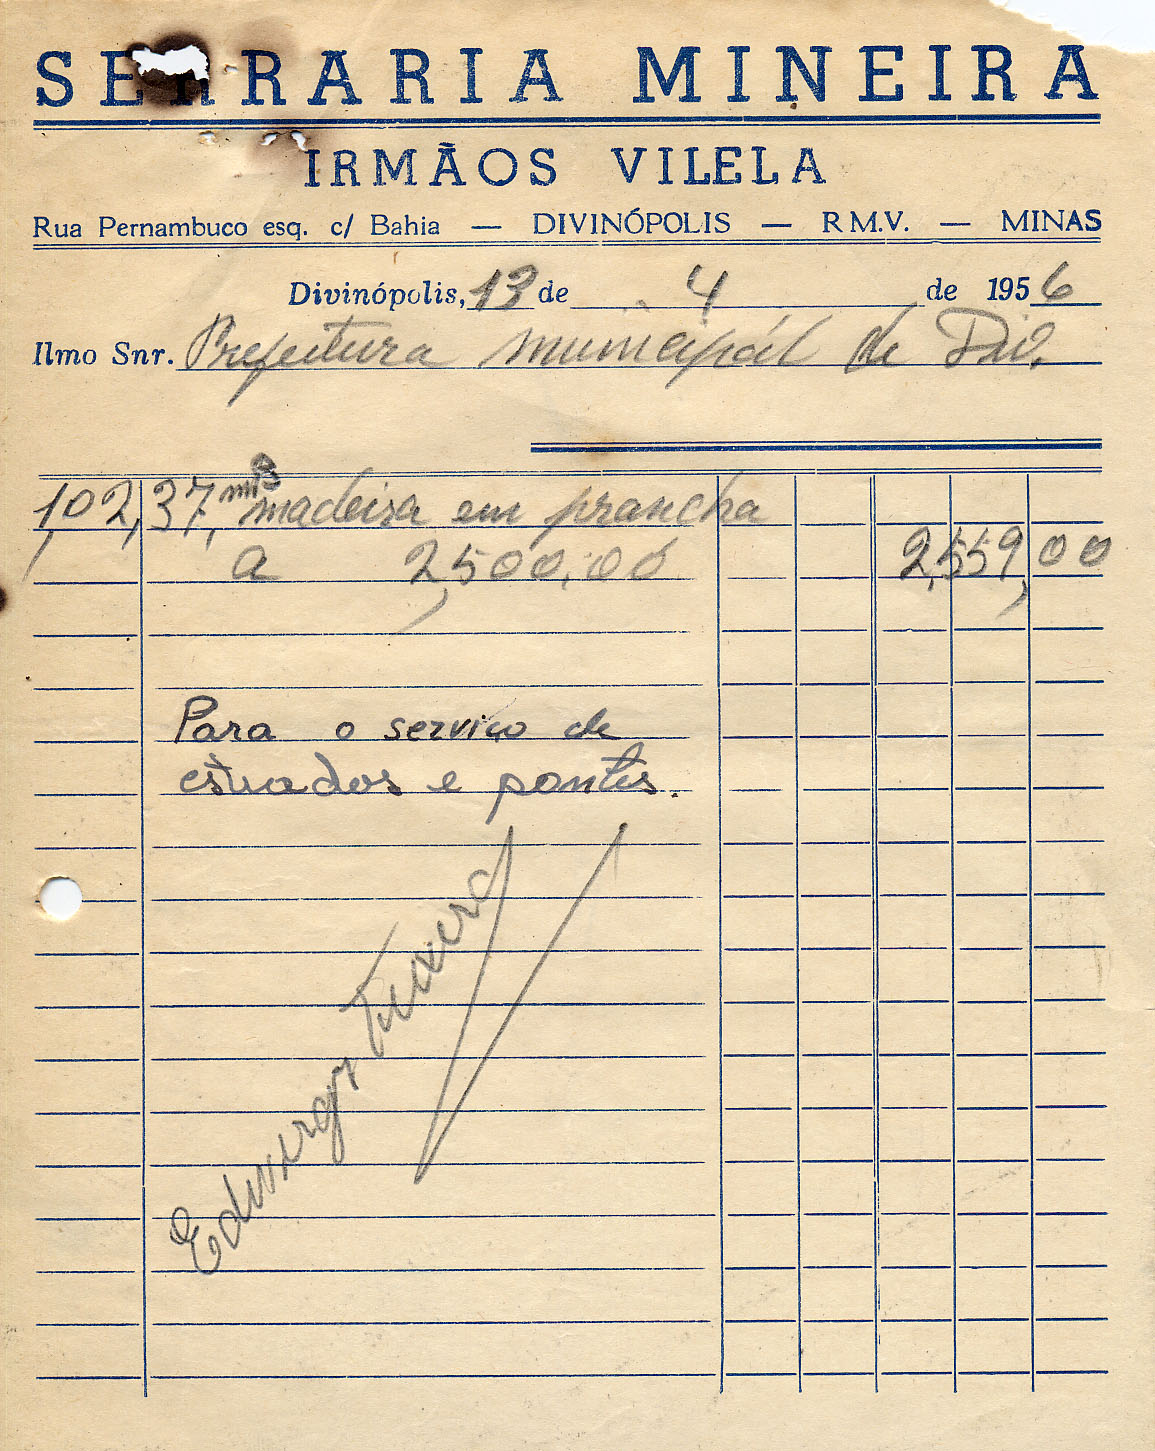 SERRARIA MINEIRA
IRMÃOS VILELA
Rua Pernambuco esq. c/ Bahia — DIVINÓPOLIS — R.M.V. — MINAS
Divinópolis, 13 de 4 de 1956
Ilmo Snr. Prefeitura municipál de Div.
1,02,37, m3 madeira em prancha
a 2,500,00 2,559,00
Para o serviço de
estradas e pontes.
Teixeira